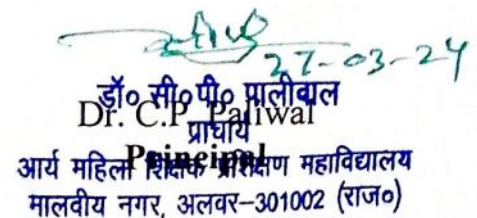 27-03-24
डॉ० सी०पी० पालीवाल
Dr. C.P. Paliwal
प्राचार्य
Principal
आर्य महिला शिक्षक प्रशिक्षण महाविद्यालय
मालवीय नगर, अलवर–301002 (राज०)